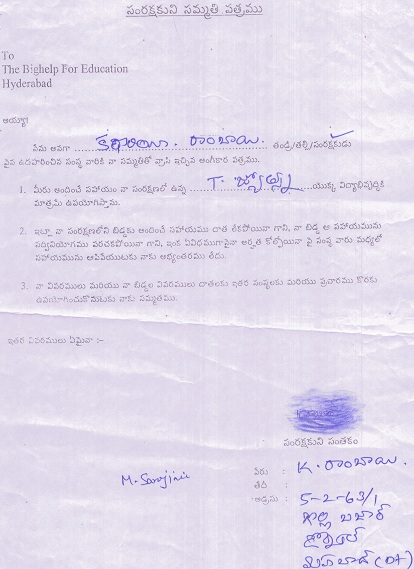 సంరక్షకుని సమ్మతి పత్రము
To
The Bighelp For Education
Hyderabad
అయ్యా!
నేను అనగా రాంబాయి. తండ్రి/తల్లి/సంరక్షకుడు
పైన ఉదహరించిన సంస్థ వారికి నా సమ్మతితో వ్రాసి ఇచ్చిన అంగీకార పత్రము.
1. మీరు అందించే సహాయం నా సంరక్షణలో ఉన్న T. యొక్క విద్యాభివృద్ధికి
మాత్రమే ఉపయోగిస్తాను.
2. ఇట్లా నా సంరక్షణలోని బిడ్డకు అందించే సహాయము దాత లేకపోయినా గాని, నా బిడ్డ ఆ సహాయమును
సద్వినియోగము పరచకపోయినా గాని, ఇంక ఏవిధముగానైనా అర్హత కోల్పోయినా పై సంస్థ వారు మధ్యలో
సహాయమును ఆపివేయుటకు నాకు అభ్యంతరము లేదు.
3. నా వివరములు మరియు నా బిడ్డల వివరములు దాతలకు ఇతర సంస్థలకు మరియు ప్రచారము కొరకు
ఉపయోగించుకొనుటకు నాకు సమ్మతము.
ఇతర వివరములు ఏమైనా :-
సంరక్షకుని సంతకం
M. Sarojini
పేరు : K. రాంబాయి.
తేదీ :
అడ్రసు : 5-2-63/1
బజార్